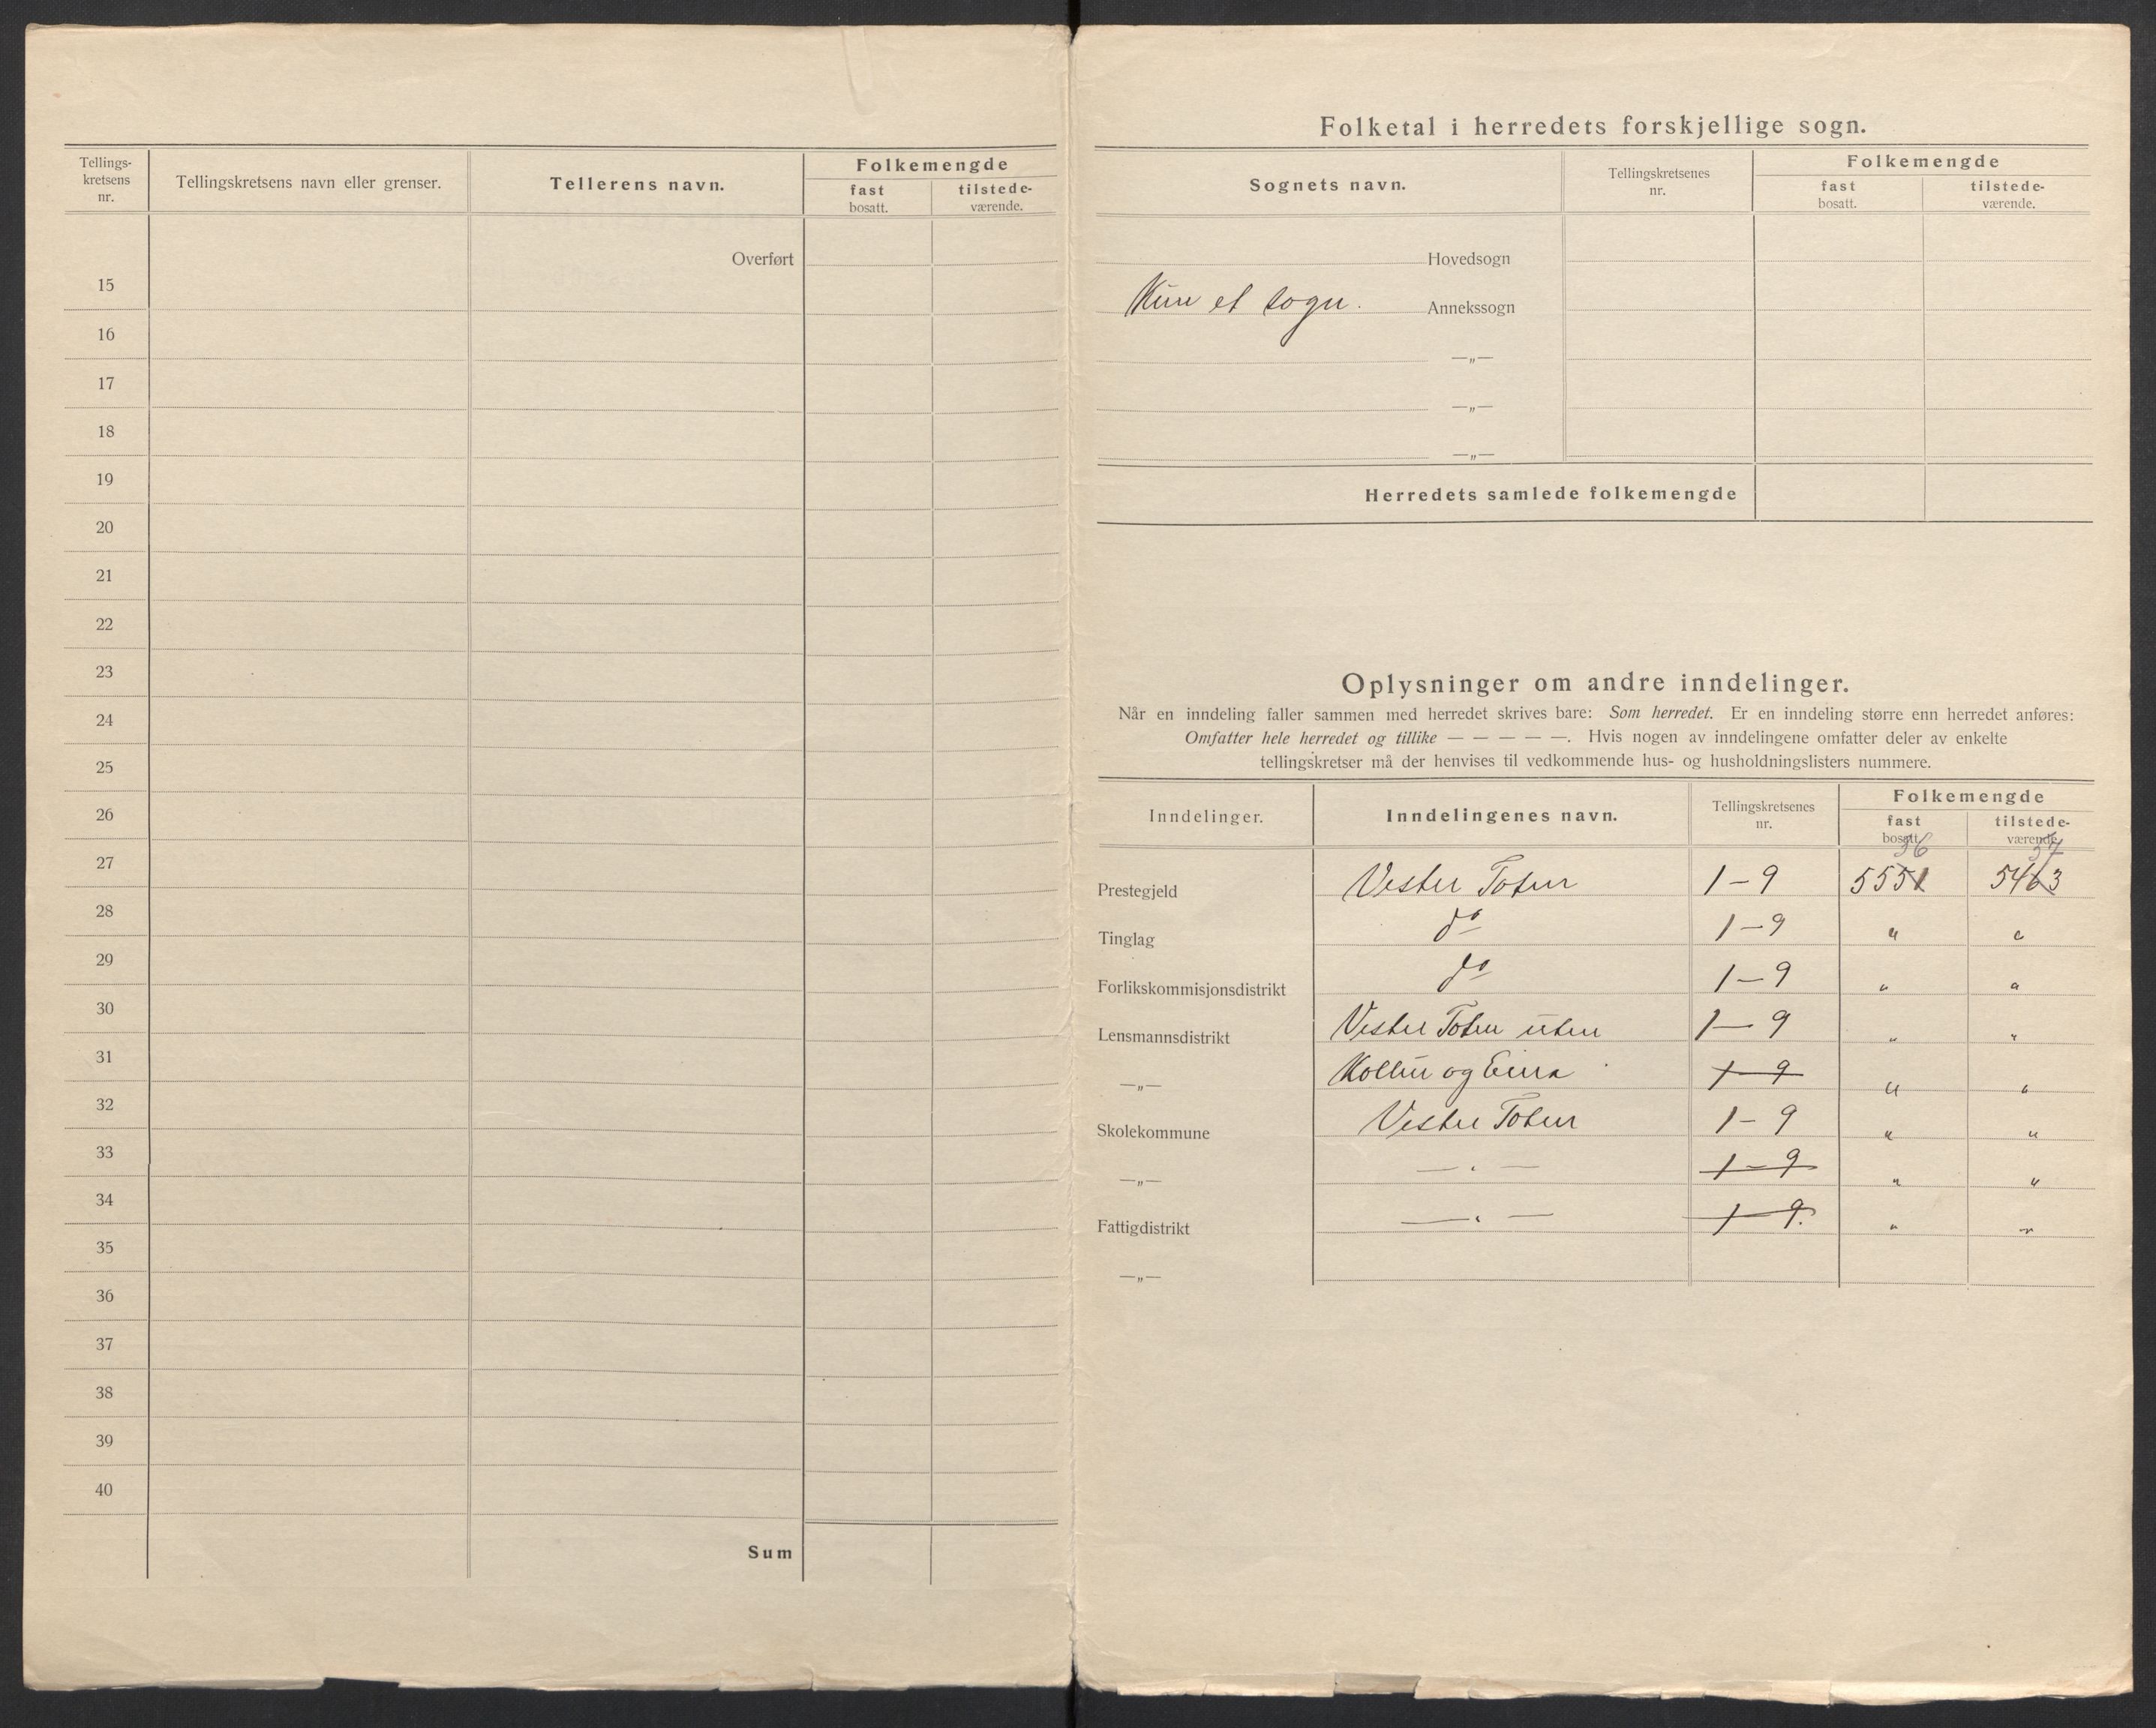 Tellings-
kretsens
nr.
Tellingskretsens navn eller grenser.
Tellerens navn.
Folkemengde
fast
bosatt.
tilstede-
værende.
Overført
15
16
17
18
19
20
21
22
23
24
25
26
27
28
29
30
31
32
33
34
35
36
37
38
39
40
Sum
Folketal i herredets forskjellige sogn.
Sognets navn.
Tellingskretsenes
nr.
Folkemengde
fast
bosatt.
tilstede-
værende.
Hovedsogn
Kun et sogn. Annekssogn
—„—
—„—
—„—
Herredets samlede folkemengde
Oplysninger om andre inndelinger.
Når en inndeling faller sammen med herredet skrives bare: Som herredet. Er en inndeling større enn herredet anføres:
Omfatter hele herredet og tillike — — — — —. Hvis nogen av inndelingene omfatter deler av enkelte
tellingskretser må der henvises til vedkommende hus- og husholdningslisters nummere.
Inndelinger.
Inndelingenes navn.
Tellingskretsenes
nr.
Folkemengde
fast
bosatt.
tilstede-
værende.
Prestegjeld Vester Toten 1-9 5551 5463
Tinglag do 1-9 " "
Forlikskommisjonsdistrikt do 1-9 " "
Lensmannsdistrikt Vester Toten uten 1-9 " "
—„— Kolbu og Eina 1-9 " "
Skolekommune Vester Toten 1-9 " "
—„— — " — 1-9 " "
Fattigdistrikt — " — 1-9. " "
—„—